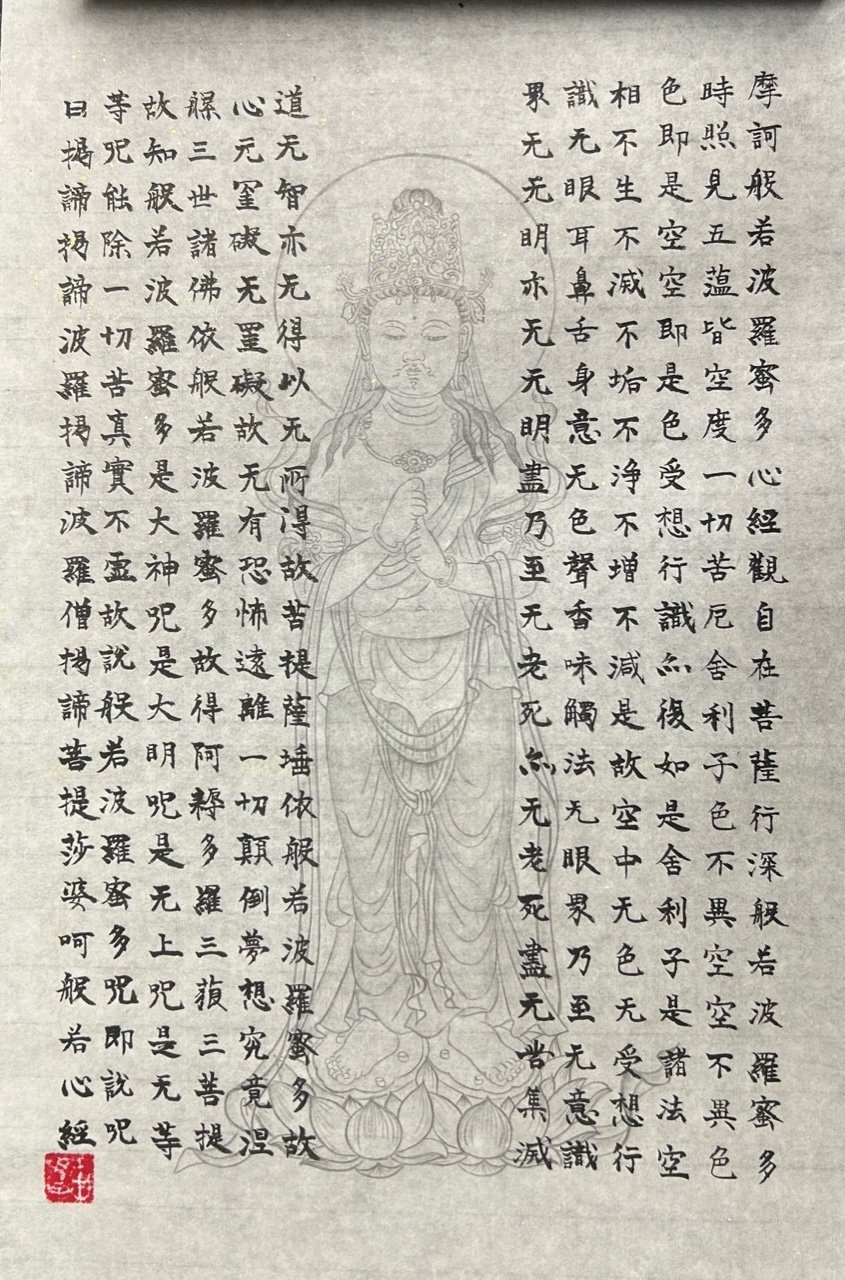 摩訶般若波羅蜜多心經觀自在菩薩行深般若波羅蜜多
時照見五蕰皆空度一切苦厄舍利子色不異空空不異色
色即是空空即是色受想行識亦復如是舍利子是諸法空
相不生不滅不垢不浄不增不減是故空中无色无受想行
識无眼耳鼻舌身意无色聲香味觸法无眼界乃至无意識
界无无明亦无无明盡乃至无老死亦无老死盡无苦集滅
道无智亦无得以无所得故菩提薩埵依般若波羅蜜多故
心无罣礙无罣礙故无有恐怖遠離一切顛倒夢想究竟涅
槃三世諸佛依般若波羅蜜多故得阿耨多羅三藐三菩提
故知般若波羅蜜多是大神咒是大明咒是无上咒是无等
等咒能除一切苦真實不虛故說般若波羅蜜多咒即說咒
曰揭諦揭諦波羅揭諦波羅僧揭諦菩提莎婆呵般若心經